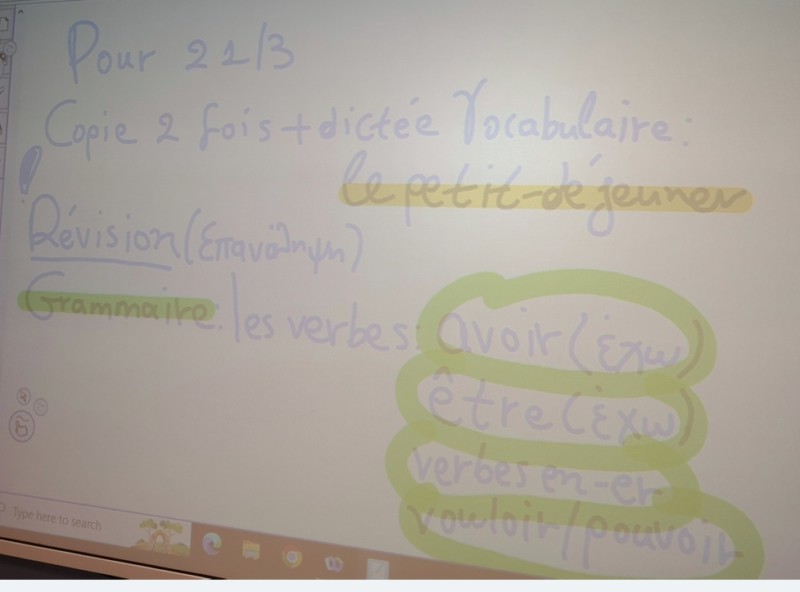 Pour 21/3
Copie 2 fois + dictée Vocabulaire:
le petit-déjeuner
Révision (επανάληψη)
Grammaire: les verbes: avoir (έχω)
être (έχω)
verbes en -er
vouloir/pouvoir
Type here to search